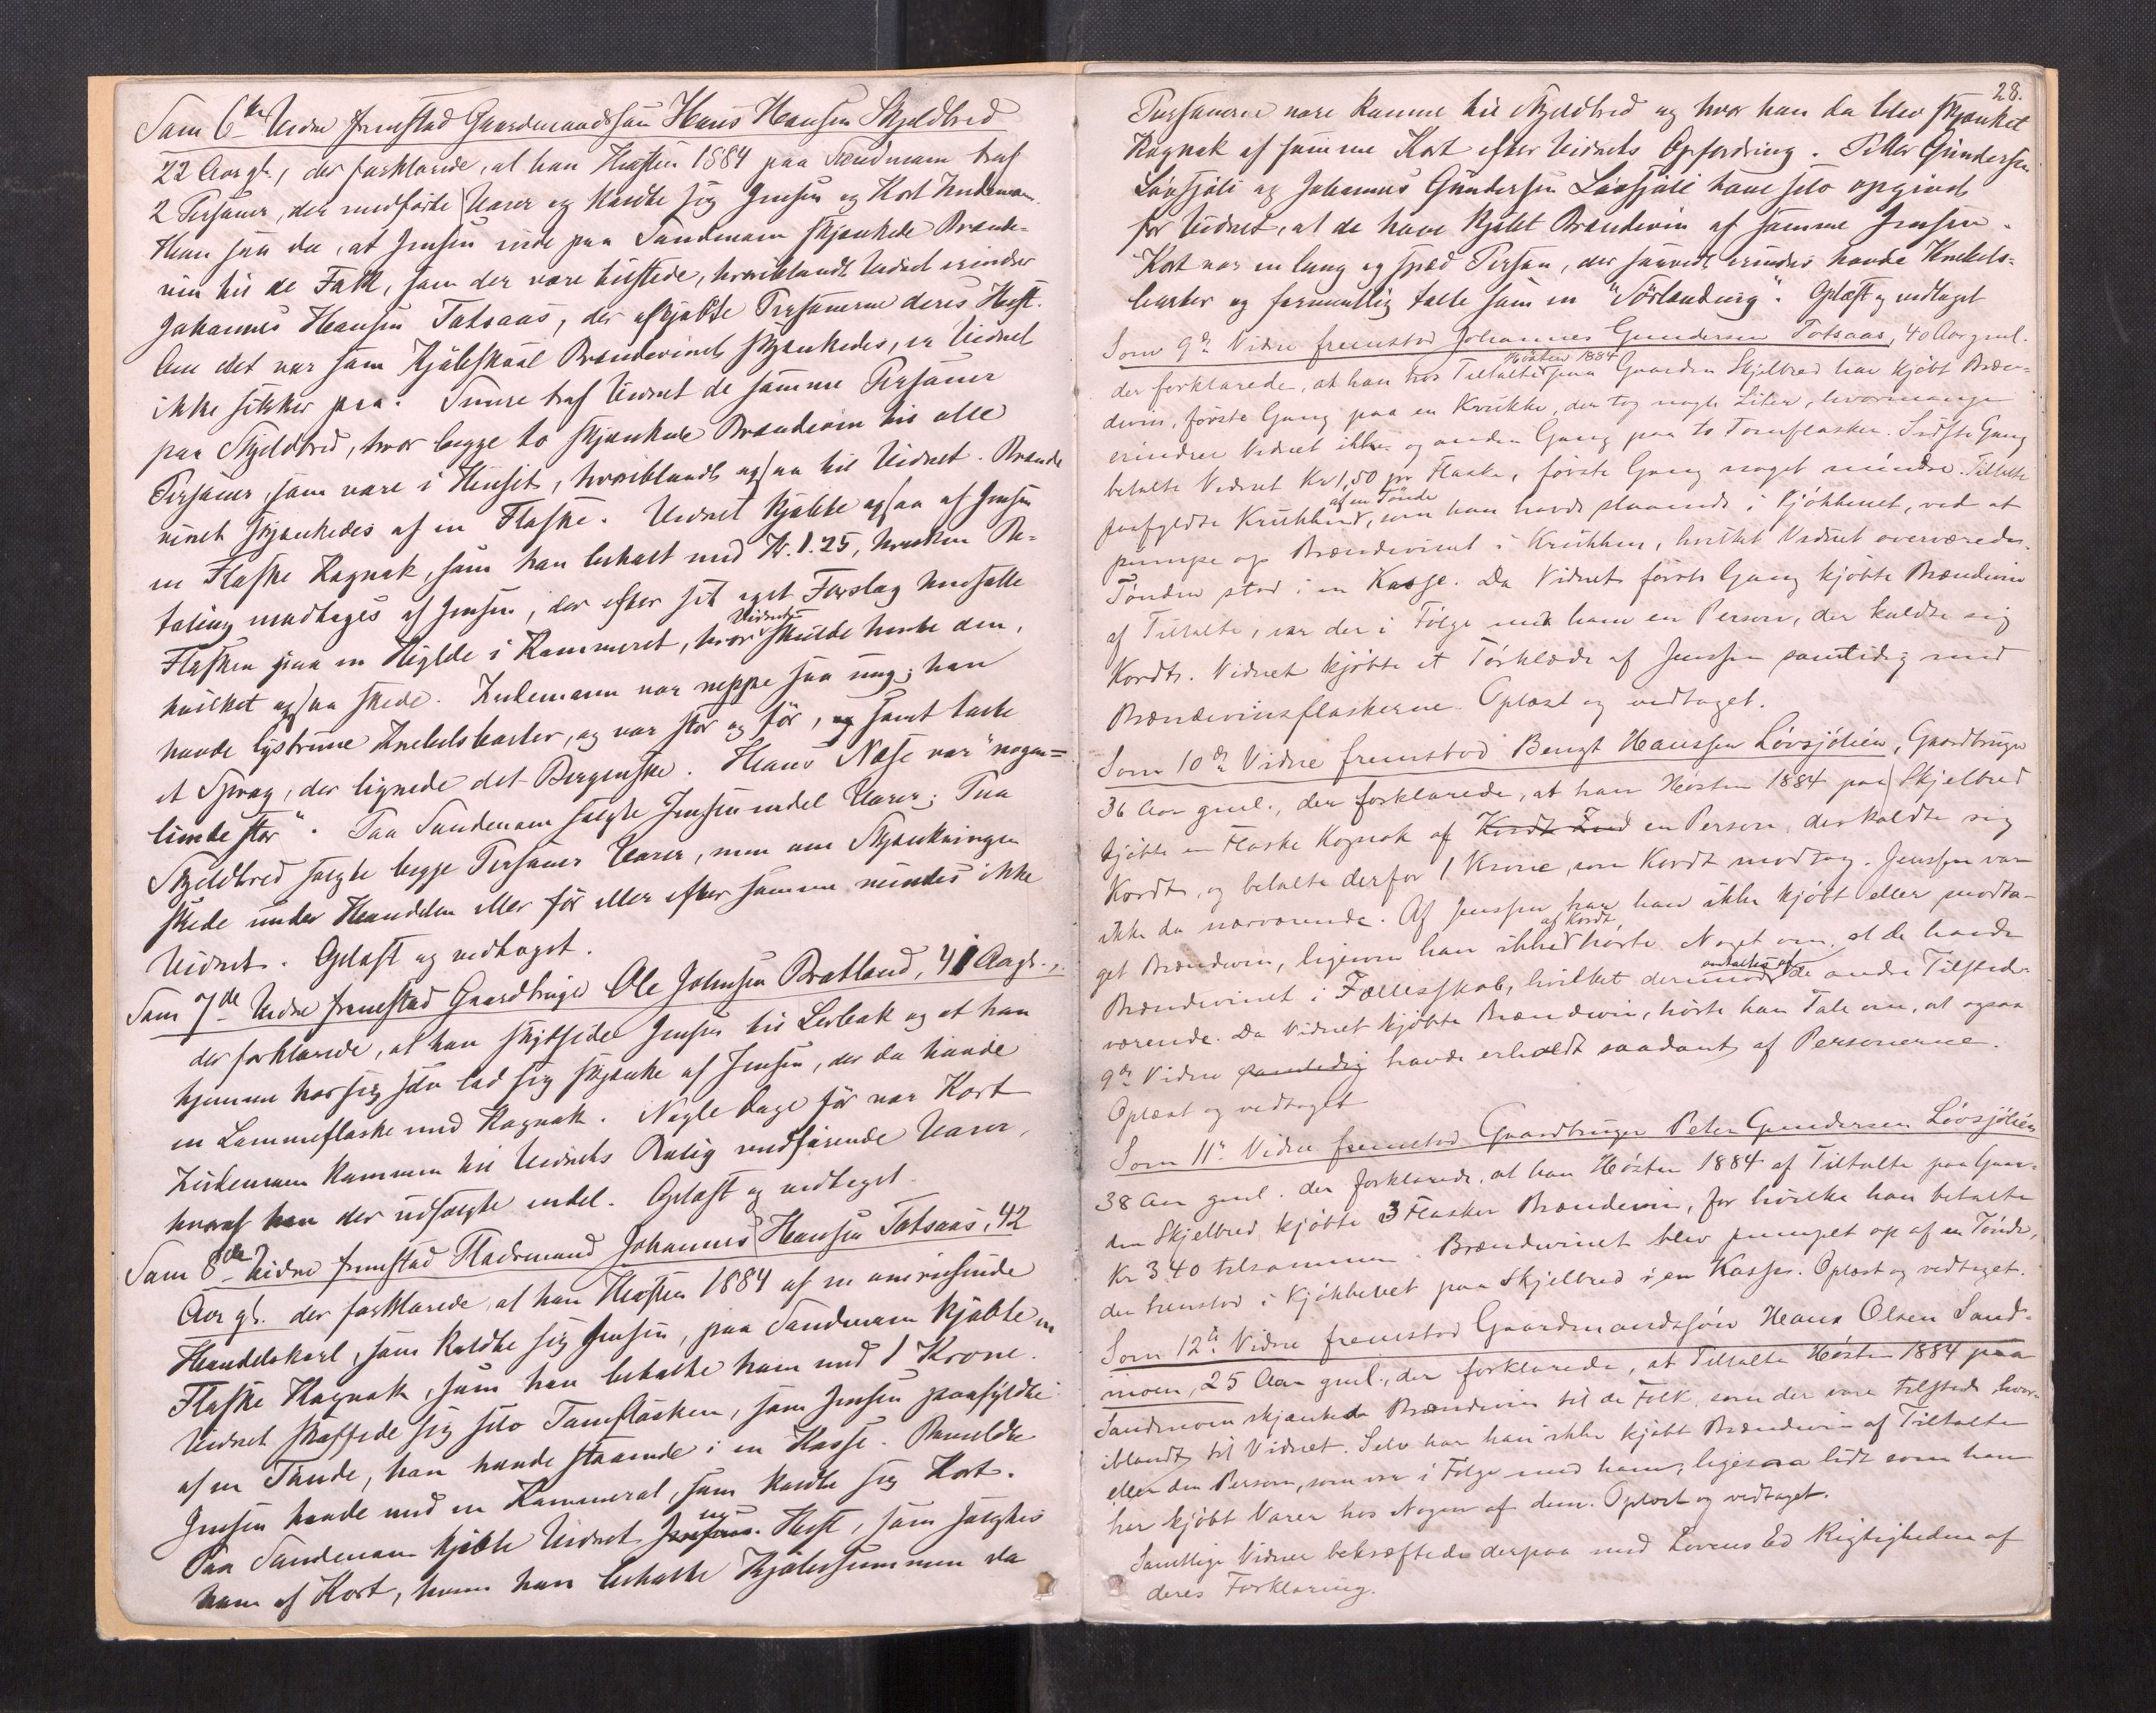 Som 6te Vidne fremstod Gaardmandssøn Hans Hansen Skjeldbred
22 Aar gl., der forklarede, at han Høsten 1884 paa Sandmoen traf
2 Personer, der medførte Varer og kaldte sig Jensen og Kort Lindemann.
Han saa da, at Jensen inde paa Sandmoen skjænkede Brænde-
vin til de Folk, som der vare tilstede, hvoriblandt Vidnet erindrer
Johannes Hansen Totsaas, der afkjøbte Personerne deres Hest.
Om det var som Kjøbskaal Brændevinet skjænkedes, er Vidnet
ikke sikker paa. Senere traf Vidnet de samme Personer
paa Skjeldbred, hvor begge to skjænkede Brændevin til alle
Personer, som vare i Huset, hvoriblandt ogsaa til Vidnet. Brænde
vinet skjænkedes af en Flaske. Vidnet kjøbte ogsaa af Jensen
en Flaske Kognak, som han betalte med Kr. 1.25, hvilken Be-
taling modtoges af Jensen, der efter sit eget Forslag hensatte
Flasken paa en Hylde i Kammeret, hvor Vidnet skulde hente den,
hvilket ogsaa skede. Lindemann var neppe saa ung; han
havde lysbrune Knebelsbarter, og var stor og før, og samt talte
et Sprog, der lignede det Bergenske. Hans Næse var "nogen-
lunde stor". Paa Sandmoen solgte Jensen endel Varer; Paa
Skjeldbred solgte begge Personer Varer, men om Skjænkningen
skede under Handelen eller før eller efter samme mindes ikke
Vidnet. Oplæst og vedtaget.
Som 7de Vidne fremstod Gaardbruger Ole Johnsen Bratland, 41 Aar gl.,
der forklarede, at han skydsede Jensen til Lerbak og at han
hjemme hos sig selv lod sig skjænke af Jensen, der da havde
en Lommeflaske med Kognak. Nogle Dage før var Kort
Lindemann kommen til Vidnets Bolig medførende Varer,
hvoraf han der udsolgte endel. Oplæst og vedtaget.
Som 8de Vidne fremstod Pladsmand Johannes Hansen Totsaas, 42
Aar gl. der forklarede, at han Høsten 1884 af en omreisende
Handelskarl, som kaldte sig Jensen, paa Sandmoen kjøbte en
Flaske Kognak, som han betalte ham med 1 Krone.
Vidnet skaffede sig selv Tomflasken, som Jensen paafyldte
af en Tønde, han havde staaende i en Kasse. Bemeldte
Jensen havde med en Kammerat, som kaldte sig Kort.
Paa Sandmoen kjøbte Vidnet en Hest, som solgtes
ham af Kort, hvem han betalte Kjøbesummen da
28.
Personerne vare komne til Skjeldbred og hvor han da blev skjænket
Kognak af samme Kort efter Vidnets Opfordring. Peter Gundersen
Løvsjøli og Johannes Gundersen Løvsjøli have selv opgivet
for Vidnet, at de have kjøbt Brændevin af samme Jensen.
Kort var en lang og spæd Person, der saavidt erindres havde Knebels-
barter og formentlig talte som en "Sørlending". Oplæst og vedtaget
Som 9de Vidne fremstod Johannes Gundersen Totsaas, 40 Aar gml.
der forklarede, at han hos Tiltalte Høsten 1884 paa Gaarden Skjelbred har kjøbt Bræn-
devin, første Gang paa en Krukke, der tog nogle Liter, hvormange
erindrer Vidnet ikke og anden Gang paa to Tomflasker. Sidste Gang
betalte Vidnet Kr 1,50 pr Flaske, første Gang noget mindre. Tiltalte
paafyldte Krukken af en Tønde, som han havde staaende i Kjøkkenet, ved at
pumpe op Brændevinet i Krukken, hvilket Vidnet overværede.
Tønden stod i en Kasse. Da Vidnet første Gang kjøbte Brændevin
af Tiltalte, var der i Følge med ham en Person, der kaldte sig
Kordt. Vidnet kjøbte et Tørklæde af Jenssen samtidig med
Brændevinsflaskerne. Oplæst og vedtaget.
Som 10de Vidne fremstod Bengt Hanssen Løvsjølien, Gaardbruger
36 Aar gml., der forklarede, at han Høsten 1884 paa Skjelbred
kjøbte en Flaske Kognak af Kordt Lind en Person, der kaldte sig
Kordt, og betalte derfor 1 Krone, som Kordt modtog. Jenssen var
ikke da nærværende. Af Jenssen har han ikke kjøbt eller modta-
get Brændevin, ligesom han ikke af Kordt hørte Noget om, at de havde
Brændevinet i Fællesskab, hvilket derimod antoges af de andre Tilstede-
værende. Da Vidnet kjøbte Brændevin, hørte han Tale om, at ogsaa
9de Vidne samtidig havde erholdt saadant af Personerne.
Oplæst og vedtaget
Som 11te Vidne fremstod Gaardbruger Peter Gundersen Løvsjølien
38 Aar gml. der forklarede, at han Høsten 1884 af Tiltalte paa Gaar-
den Skjelbred kjøbte 3 Flasker Brændevin, for hvilke han betalte
Kr 3.40 tilsammen. Brændevinet blev pumpet op af en Tønde,
der henstod i Kjøkkenet paa Skjelbred i en Kasse. Oplæst og vedtaget.
Som 12te Vidne fremstod Gaardmandssøn Hans Olsen Sand-
moen, 25 Aar gml., der forklarede, at Tiltalte Høsten 1884 paa
Sandmoen skjænkede Brændevin til de Folk, som der vare tilstede, hvor-
iblandt til Vidnet. Selv har han ikke kjøbt Brændevin af Tiltalte
eller den Person, som var i Følge med ham, ligesaa lidt som han
har kjøbt Varer hos Nogen af dem. Oplæst og vedtaget.
Samtlige Vidner bekræftede derpaa med Lovens Ed Rigtigheden af
deres Forklaring.